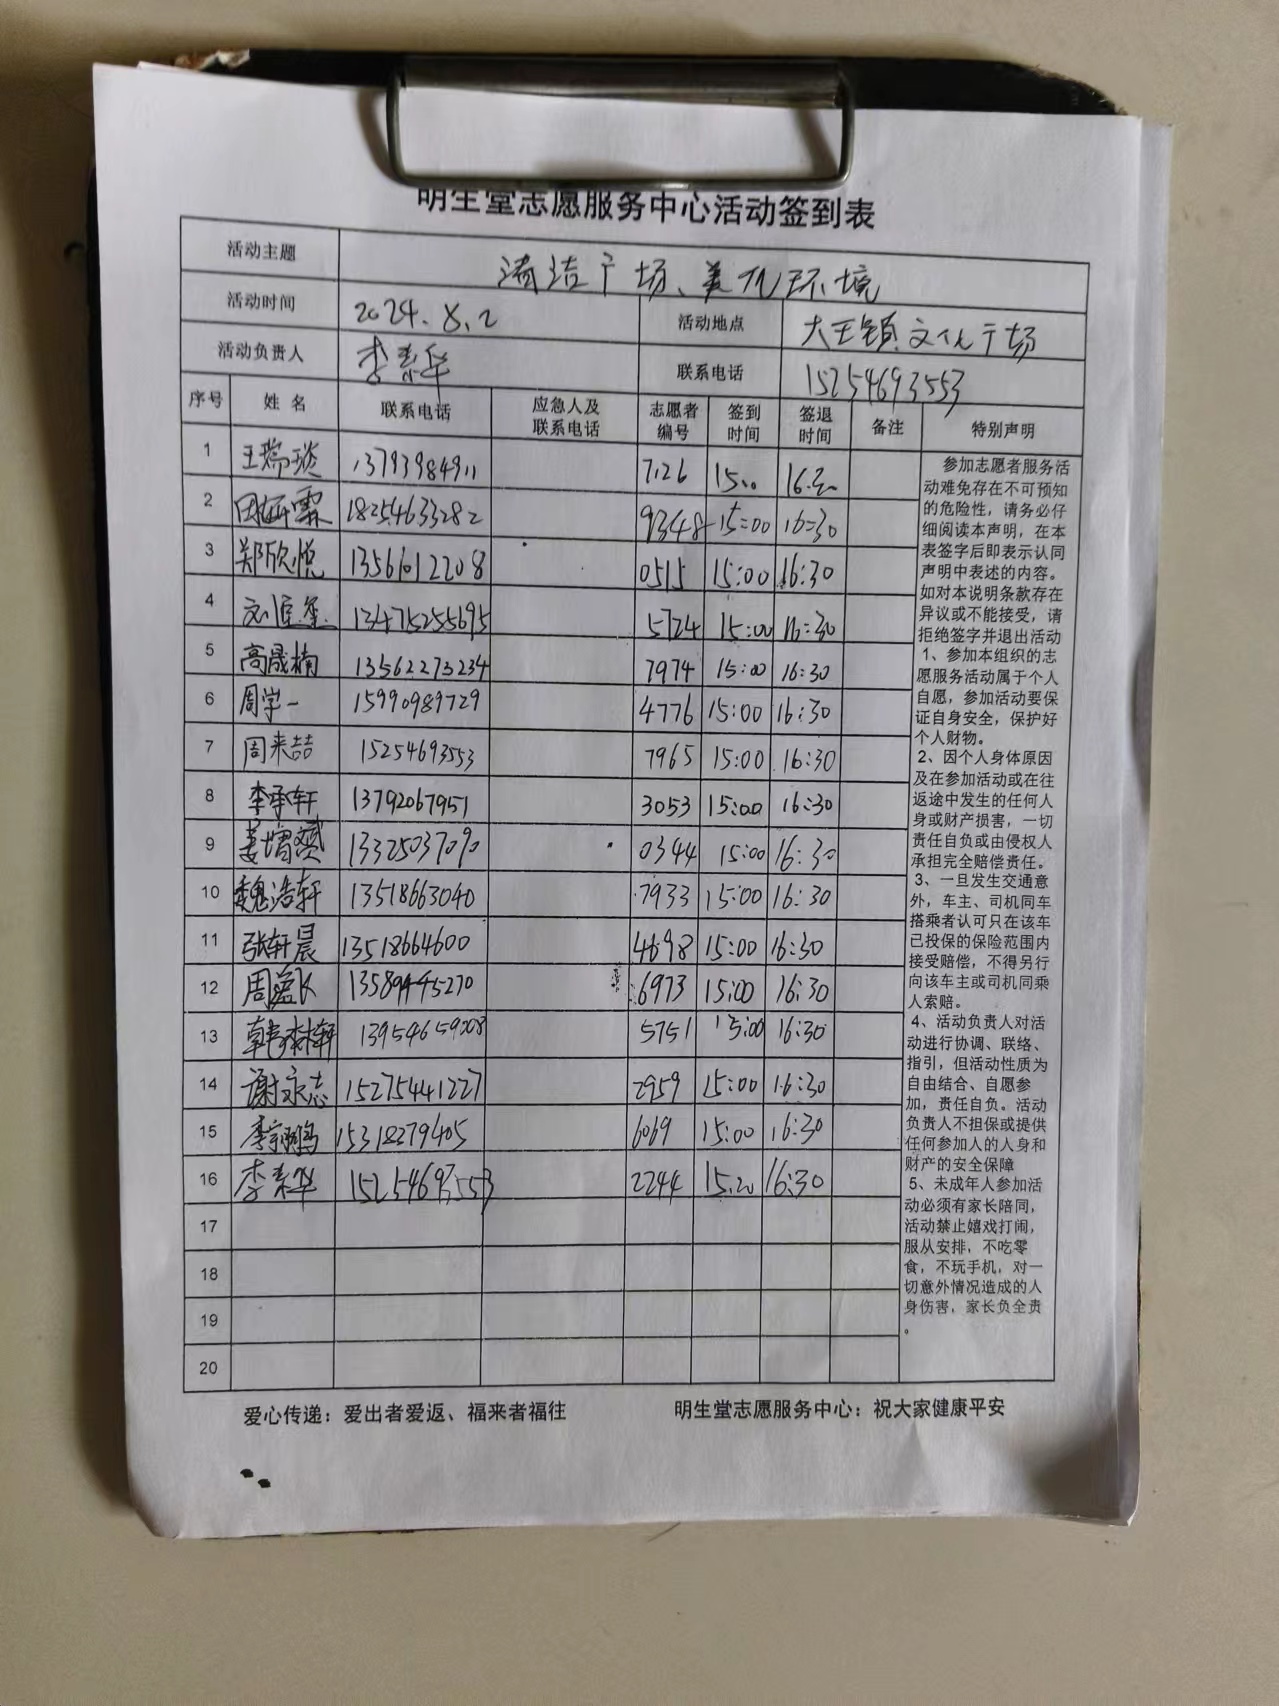 明生堂志愿服务中心活动签到表
活动主题 清洁广场、美化环境
活动时间 2024.8.2 活动地点 大王镇文化广场
活动负责人 李素华 联系电话 15254693553
序号 姓名 联系电话 应急人及联系电话 志愿者编号 签到时间 签退时间 备注 特别声明
1 王瑞琰 13793984911 7126 15:00 16:30
2 霖 18254633282 9348 15:00 16:30
3 郑欣悦 13561012208 0515 15:00 16:30
4 13475255695 5724 15:00 16:30
5 高晟楠 13562273234 7974 15:00 16:30
6 周学一 15990989729 4776 15:00 16:30
7 周来喆 15254693553 7965 15:00 16:30
8 李承轩 13792067951 3053 15:00 16:30
9 姜 13325037090 0344 15:00 16:30
10 魏浩轩 13518663040 7933 15:00 16:30
11 张轩晨 13518664600 4698 15:00 16:30
12 周 13589445270 6973 15:00 16:30
13 韩 轩 13954659008 5751 15:00 16:30
14 谢永志 15275441227 2959 15:00 16:30
15 李 鹏 15318379405 6069 15:00 16:30
16 李素华 15254693553 2244 15:20 16:30
17
18
19
20
参加志愿者服务活
动难免存在不可预知
的危险性，请务必仔
细阅读本声明，在本
表签字后即表示认同
声明中表述的内容。
如对本说明条款存在
异议或不能接受，请
拒绝签字并退出活动
1、参加本组织的志
愿服务活动属于个人
自愿，参加活动要保
证自身安全，保护好
个人财物。
2、因个人身体原因
及在参加活动或在往
返途中发生的任何人
身或财产损害，一切
责任自负或由侵权人
承担完全赔偿责任。
3、一旦发生交通意
外，车主、司机同车
搭乘者认可只在该车
已投保的保险范围内
接受赔偿，不得另行
向该车主或司机同乘
人索赔。
4、活动负责人对活
动进行协调、联络、
指引，但活动性质为
自由结合、自愿参
加，责任自负。活动
负责人不担保或提供
任何参加人的人身和
财产的安全保障
5、未成年人参加活
动必须有家长陪同，
活动禁止嬉戏打闹，
服从安排，不吃零
食，不玩手机，对一
切意外情况造成的人
身伤害，家长负全责
。
爱心传递：爱出者爱返、福来者福往 明生堂志愿服务中心：祝大家健康平安